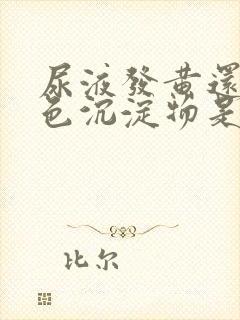 尿液發黄還
色沉淀物是
比尔